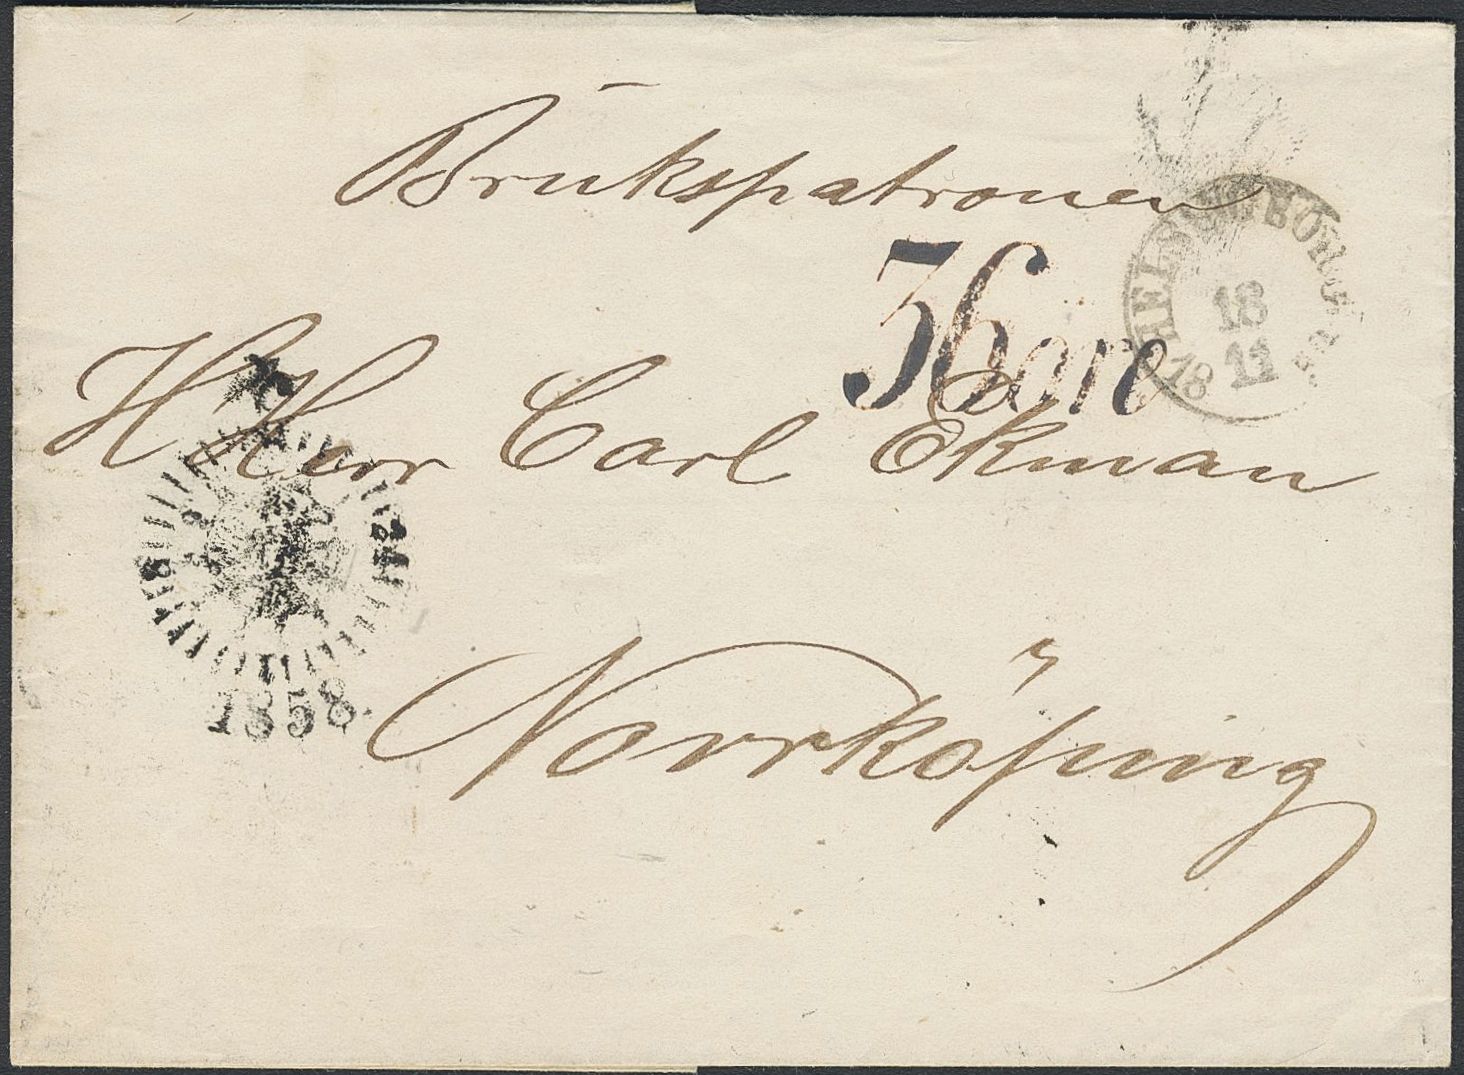 Brukspatronen
36 öre
HELSINGBORG
18
11
18
H Herr Carl Ekman
1858.
Norrköping